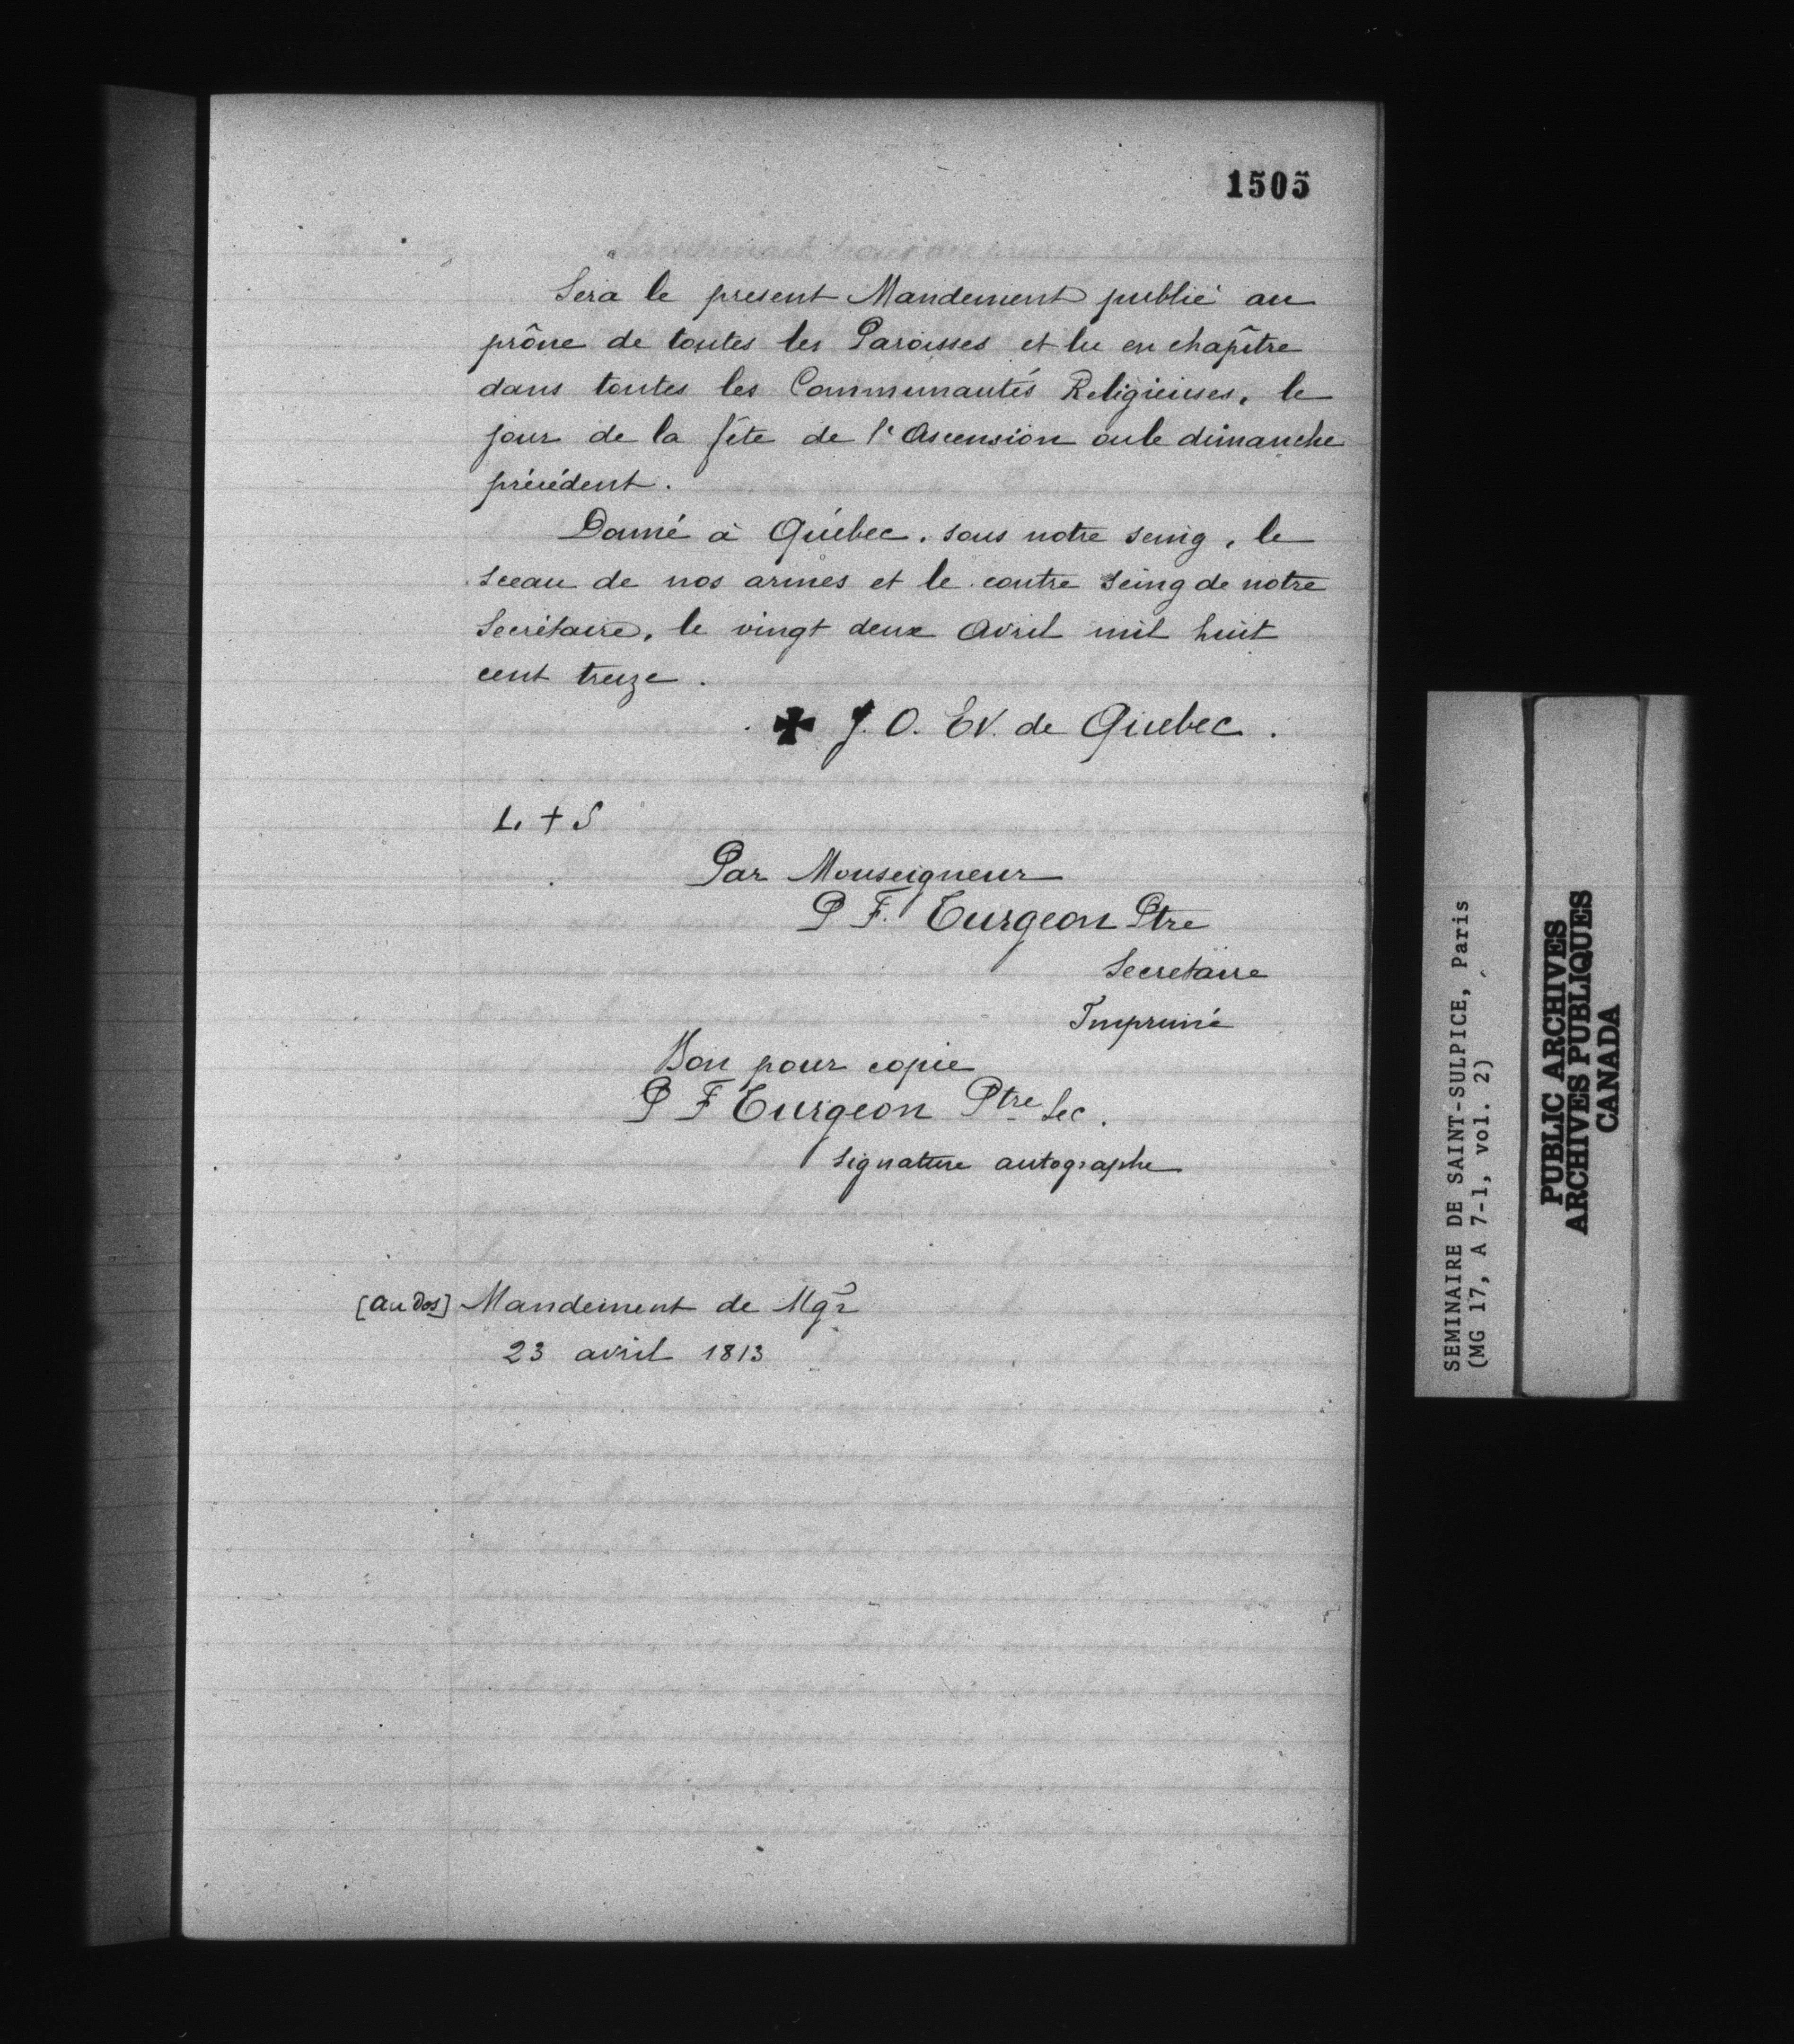 1505
Sera le present Mandement publié au
prône de toutes les Paroisses et lu en chapître
dans toutes les Communautés Religieuses, le
jour de la fête de l'Ascension ou le dimanche
précédent.
Donné à Québec, sous notre seing, le
sceau de nos armes et le contre seing de notre
Secrétaire, le vingt deux Avril mil huit
cent treize.
✠ J. O. Ev. de Quebec.
L + S
Par Monseigneur
P F. Turgeon Ptre
Secretaire
Imprimé
Bon pour copie
P F Turgeon Ptre Sec.
signature autographe
[au dos] Mandement de Mgr
23 avril 1813
SEMINAIRE DE SAINT-SULPICE, Paris
(MG 17, A 7-1, vol. 2)
PUBLIC ARCHIVES
ARCHIVES PUBLIQUES
CANADA